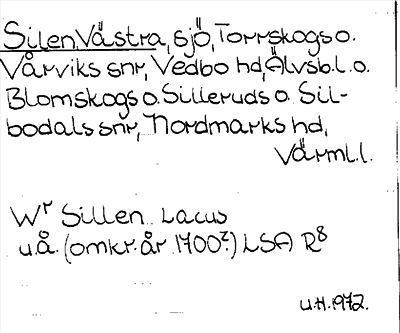 Silen, Västra, sjö, Torrskogs o.
Vårviks snr, Vedbo hd, Älvsb. l. o.
Blomskogs o. Silleruds o. Sil-
bodals snr, Nordmarks hd,
Värml. l.
Wr Sillen Lacus
u.å. (omkr. år 1700?) LSA R8
U.H. 1972.